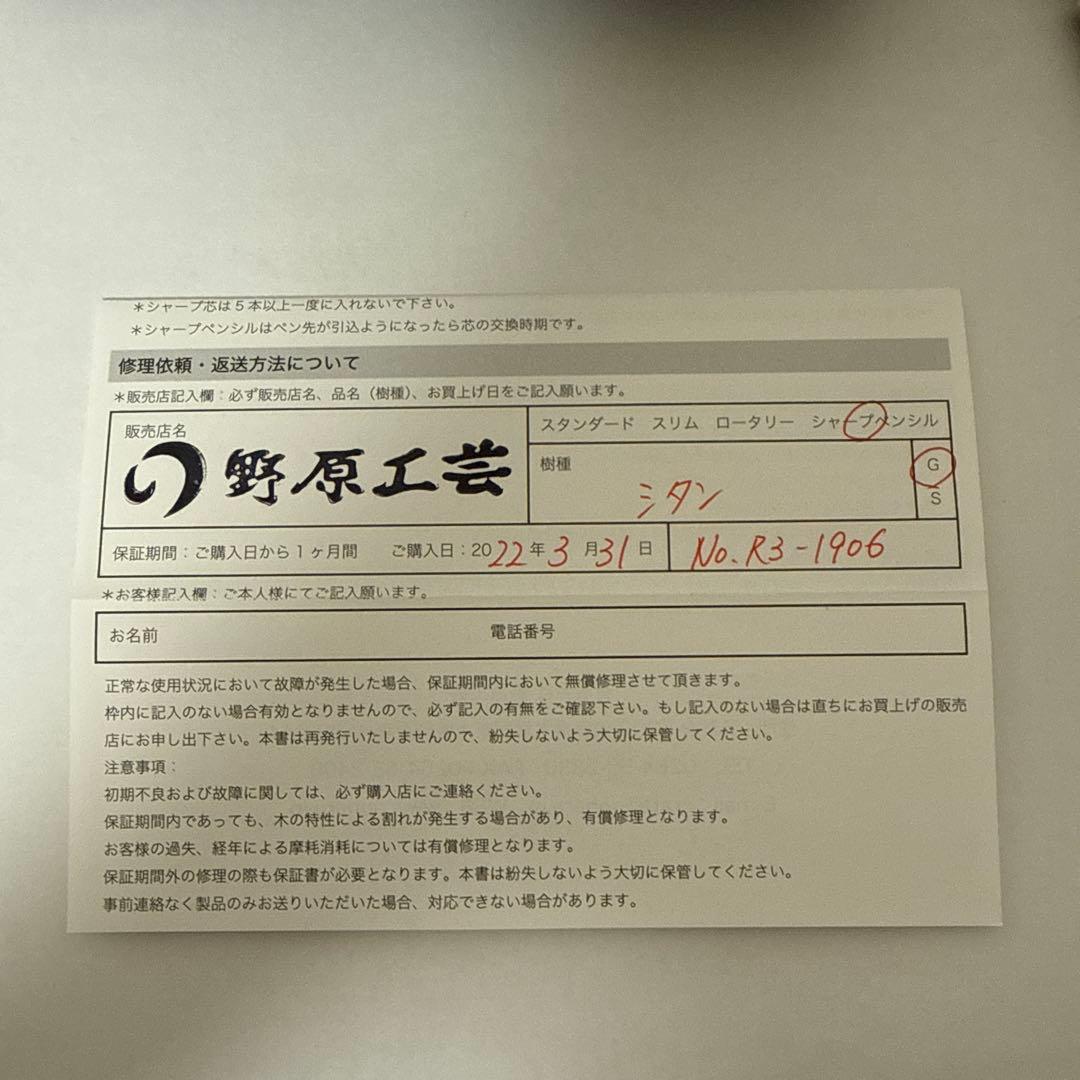 ＊シャープ芯は５本以上一度に入れないで下さい。
＊シャープペンシルはペン先が引込ようになったら芯の交換時期です。
修理依頼・返送方法について
＊販売店記入欄：必ず販売店名、品名（樹種）、お買上げ日をご記入願います。
販売店名
野原工芸
スタンダード　スリム　ロータリー　シャープペンシル
樹種
シタン
G
S
保証期間：ご購入日から１ヶ月間　ご購入日：2022年3月31日
No. R3-1906
＊お客様記入欄：ご本人様にてご記入願います。
お名前　電話番号
正常な使用状況において故障が発生した場合、保証期間内において無償修理させて頂きます。
枠内に記入のない場合有効となりませんので、必ず記入の有無をご確認下さい。もし記入のない場合は直ちにお買上げの販売
店にお申し出下さい。本書は再発行いたしませんので、紛失しないよう大切に保管してください。
注意事項：
初期不良および故障に関しては、必ず購入店にご連絡ください。
保証期間内であっても、木の特性による割れが発生する場合があり、有償修理となります。
お客様の過失、経年による摩耗消耗については有償修理となります。
保証期間外の修理の際も保証書が必要となります。本書は紛失しないよう大切に保管してください。
事前連絡なく製品のみお送りいただいた場合、対応できない場合があります。